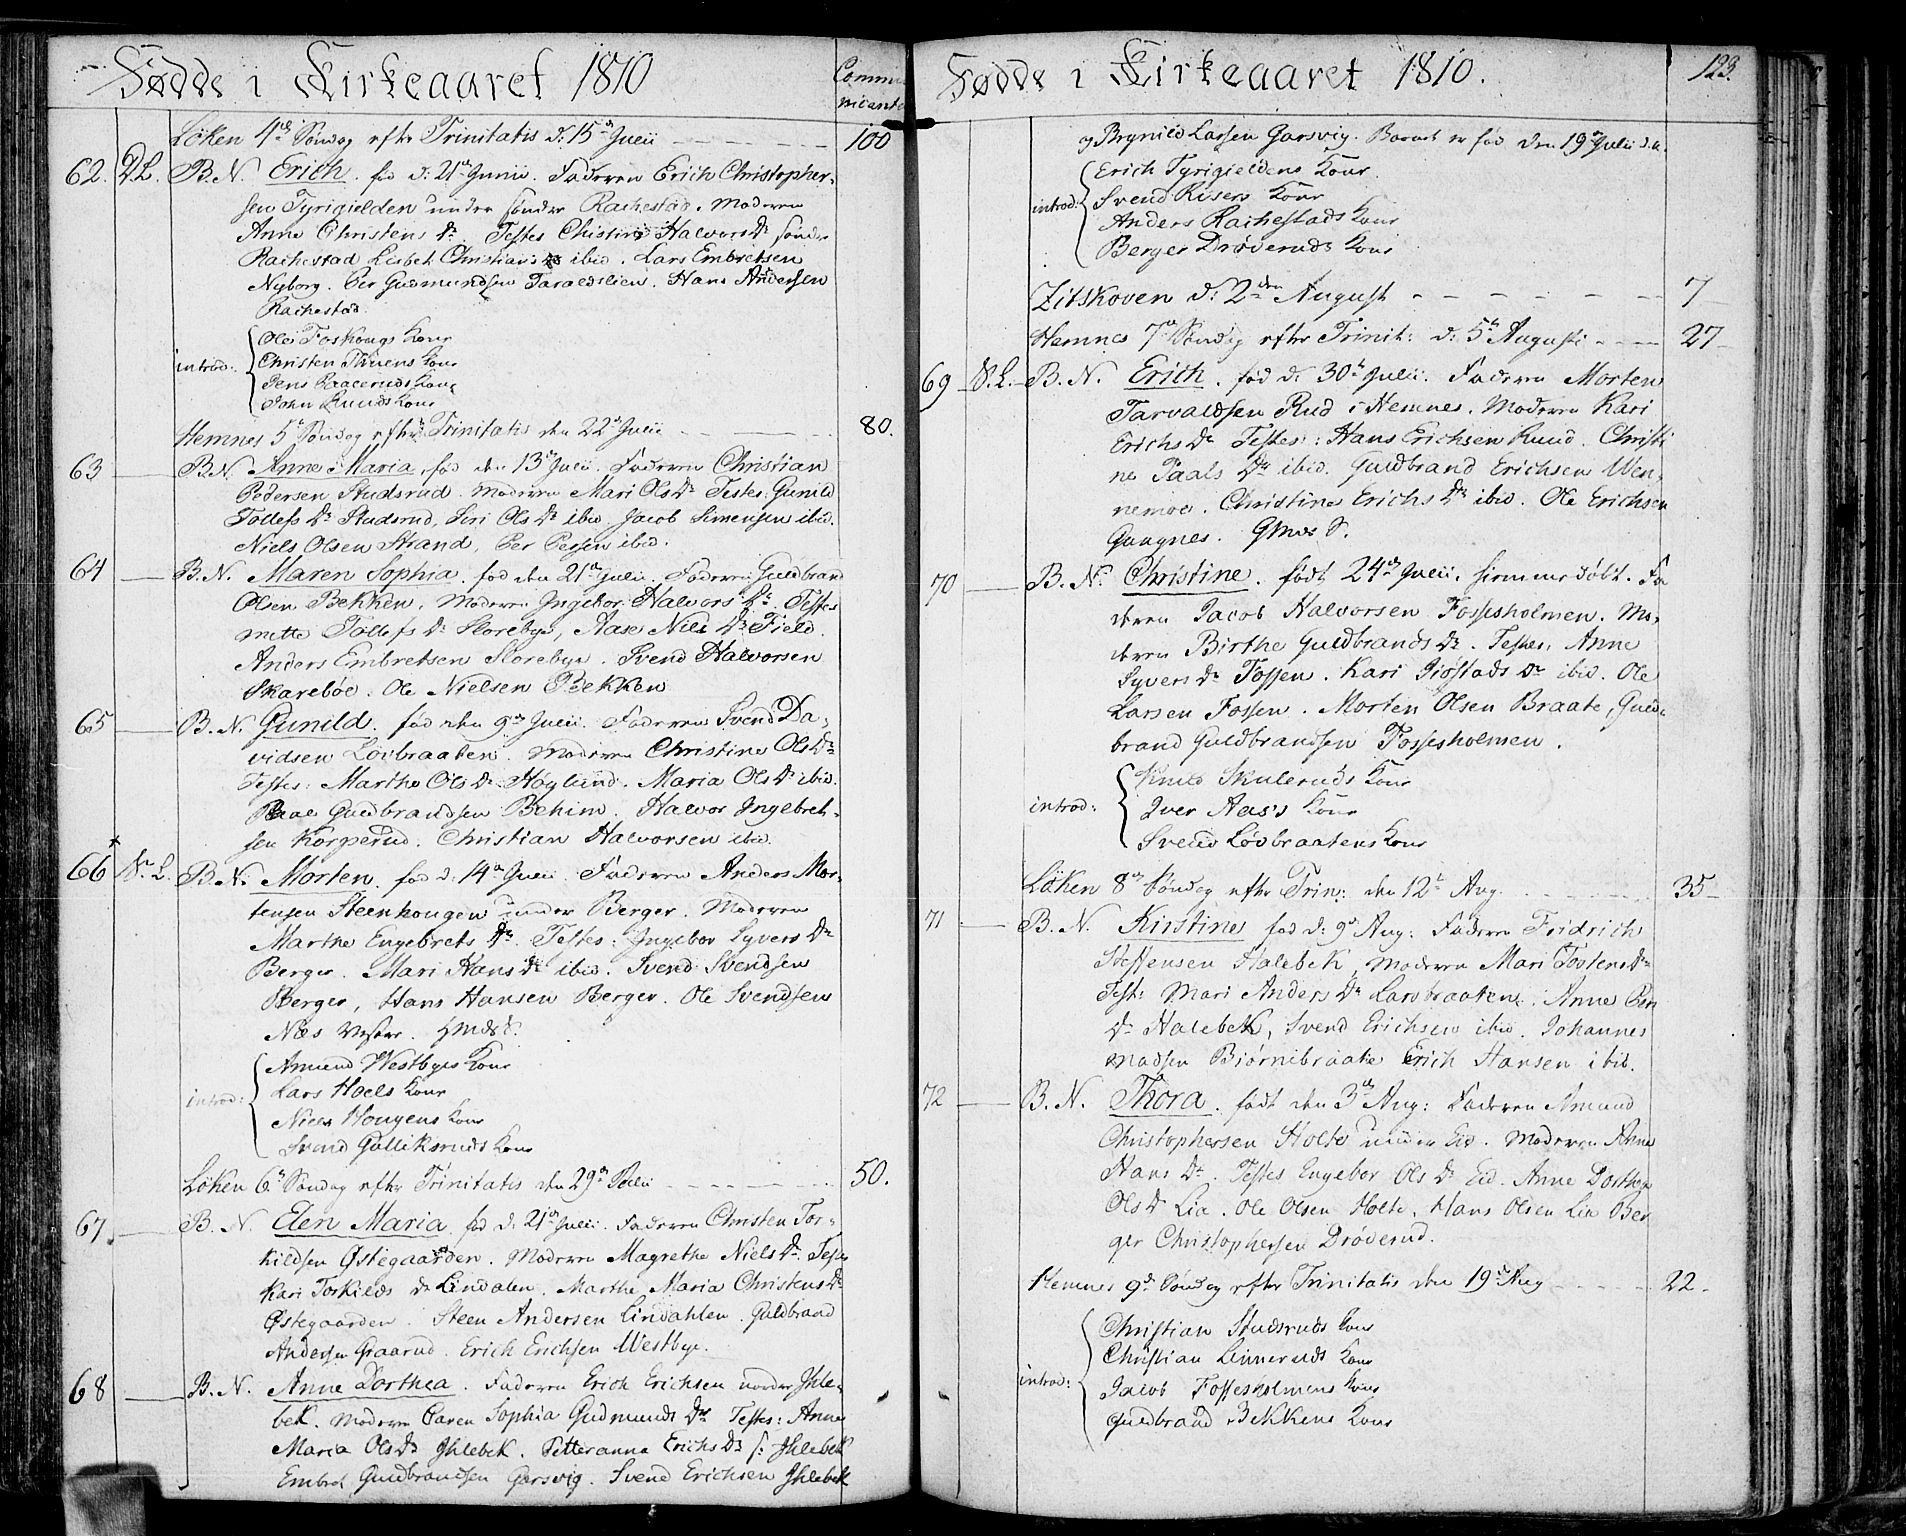 Fødde i Kirkeaaret 1810
Communicantes
Löken 4de Søndag efter Trinitatis d: 15de Julii - - - - 100
62. D.L. B.N. Erich. fød d: 21de Junii. Faderen Erich Christopher-
sen Tyrigielden under sønder Rachestad. Moderen
Anne Christens Dr. Testes Christine Halvors Dr sønder
Rachestad Lisbet Christians Dr ibid. Lars Embretsen
Nyborg. Per Gudmundsen Taraldslien. Hans Andersen
Rachestad.
introd: Ole Foshougs Kone
Christen Tauens Kone
Jens Raaeruds Kone
John Lunds Kone
Hemnes 5te Søndag efter Trinitatis den 22de Julii - - - 80.
63 — B.N. Anne Maria, fød den 13de Julii. Faderen Christian
Pedersen Studsrud. Moderen Mari Ols Dr Testes: Gunild
Tollefs Dr Studsrud, Siri Ols Dr ibid Jacob Simensen ibid.
Niels Olsen Strand, Per Persen ibid.
64 — B.N. Maren Sophia. fød den 21de Julii. Faderen Guldbrand
Olsen Bekken, Moderen Ingebor Halvors Dr. Testes
Mette Tollefs Dr Slorebye, Aase Niels Dr Field.
Anders Embretsen Slorebye. Svend Halvorsen
Skareböe. Ole Nielsen Bekken
65 — B.N. Gunild. fød den 9de Julii. Faderen Svend Da-
vidsen Lövbraaten. Moderen Christine Ols Dr
Testes: Marthe Ols Dr Høglund. Maria Ols Dr ibid.
Paal Guldbrandsen Behim. Halvor Ingebret-
sen Korperud. Christian Halvorsen ibid.
66 N.L. B.N. Morten. fød d: 14de Julii. Faderen Anders Mor-
tensen Steenhougen under Berger. Moderen
Marthe Engebrets Dr. Testes: Ingebor Syvers Dr
Berger. Mari Hans Dr ibid. Svend Svendsen
Berger, Hans Hansen Berger. Ole Svendsen
Næs Vester.
introd: Amund Westbyes Kone
Lars Hoels Kone
Niels Hougens Kone
Svend Gulliksruds Kone
Löken 6te Søndag efter Trinitatis den 29de Julii - - - - 50.
67 — B.N. Elen Maria. fød d: 21de Julii. Faderen Christen Tor-
kildsen Østegaarden. Moderen Magrethe Niels Dr. Testes
Kari Torkilds Dr Lindalen. Marthe Maria Christens Dr
Østegaarden. Steen Andersen Lindahlen. Guldbrand
Andersen Graarud. Erich Erichsen Westbye.
68 — B.N. Anne Dorthea. Faderen Erich Erichsen nordre Ihle-
bek. Moderen Caren Sophia Gudmunds Dr Testes: Anne
Maria Ols Dr Ihlebek. Petteranna Erichs Dr s: Ihlebek
Embret Guldbrandsen Garsvig. Svend Erichsen Ihlebek
Fødde i Kirkeaaret 1810.
123.
og Brynild Larsen Garsvig. Barnet er fød den 19de Julii d.a.
introd: Erich Tyrigieldens Kone.
Svend Risers Kone
Anders Rachestads Kone
Berger Drøveruds Kone
Zitskoven d: 2den August - - - - - - 7
Hemnes 7de Søndag efter Trinit: d: 5te Augusti - - - 27
69 — N.L. B.N. Erich. fød d: 30te Julii. Faderen Morten
Tarvaldsen Rud i Hemnes. Moderen Kari
Erichs Dr Testes: Hans Erichsen Ruud. Christi
ne Paals Dr ibid. Guldbrand Erichsen Wen-
nemoe. Christine Erichs Dr ibid. Ole Erichsen
Guugnes.
70 — B.N. Christine. født 24de Julii, hiemmedøbt. Fa
deren Jacob Halvorsen Fossesholmen. Mo-
deren Birthe Guldbrands Dr. Testes, Anne
Syvers Dr Fossen. Kari Giøstads Dr ibid. Ole
Larsen Fossen. Morten Olsen Braate, Guld-
brand Guldbrandsen Fossesholmen.
introd: Knud Skuleruds Kone
Iver Aas's Kone
Svend Lövbraatens Kone
Löken 8de Søndag efter Trin: den 12te Aug. - - - - 35
71 — B.N. Kirstine fød d: 9de Aug: Faderen Fridrich
Steffensen Halebek, Moderen Mari Tostens Dr
Test: Mari Anders Dr Larsbraaten. Anne Pers
Dr Halebek, Svend Erichsen ibid. Johannes
Madsen Biørnibraate Erich Hansen ibid.
72 — B.N. Thora. født den 3de Aug: Faderen Amund
Christophersen Holte under Eid. Moderen Anne
Hans Dr. Testes Engebor Ols Dr Eid. Anne Dorthea
Ols Dr Lia. Ole Olsen Holte. Hans Olsen Lia Ber
ger Christophersen Drøverud.
Hemnes 9de Søndag efter Trinitatis den 19de Aug - - - - 22.
introd: Christian Studsruds Kone
Christian Linneruds Kone
Jacob Fossesholmens Kone
Guldbrand Bekkens Kone